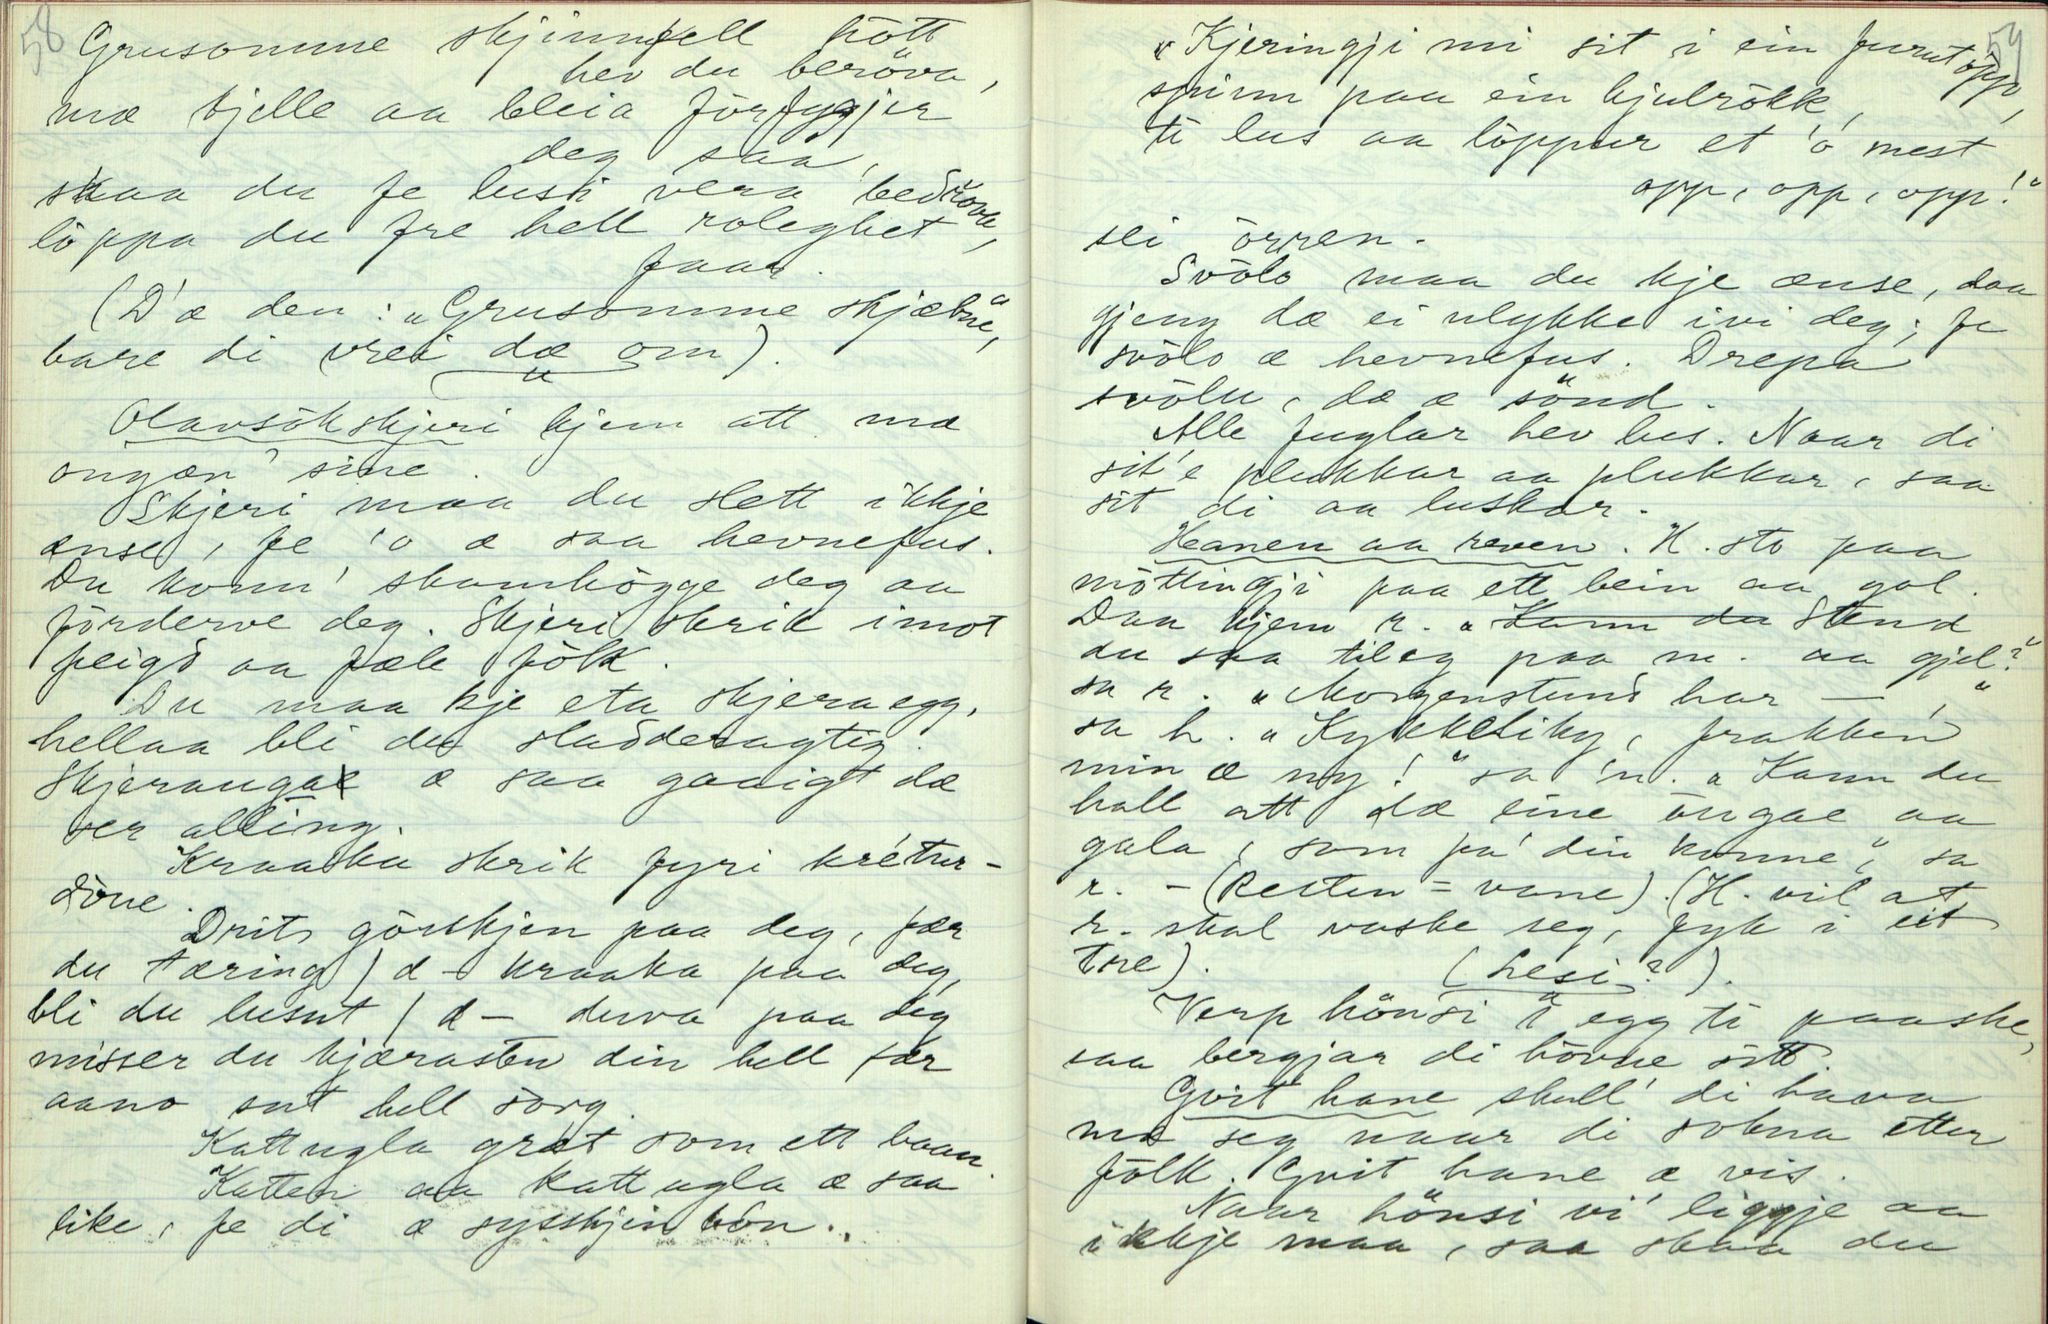 58
Grusomme skjinnfell hött
hev du beröva,
mæ kjelle aa bleia förfygjer
deg saa,
skaa du fe lusi vera bedröva,
löppa du fre hell roleghet
faar.
(D'æ den: "Grusomme skjæbne",
bare di vrei dæ om).
Olavsökskjeri kjem att mæ
ongæn' sine.
Skjeri maa du slett ikkje
ænse, fe 'o æ saa hevnefus.
Du konn' skamhögge deg aa
förderve deg. Skjeri skrik imot
feigd aa fæle fölk.
Du maa kje eta skjeraegg,
hellaa bli du sladderagtig.
Skjeraugae æ saa gaaigt dæ
ser allting.
Kraaka skrik fyri krétur-
döne.
Drit görskjen paa deg, fær
du tæring / d - kraaka paa deg,
bli du lusut / d - duva paa deg
misser du kjærasten din hell fær
aano sut hell sörg.
Kattugla græt som ett baan.
Katten aa kattugla æ saa
like, fe di æ sysskjinbön.
59
"Kjeringji mi sit i ein furutöpp,
spinn paa ein hjulrökk,
ti lus aa löppur et 'o mest
opp, opp, opp!"
sei örren.
Svölo maa du kje ænse, daa
gjeng dæ ei ulykke ivi deg; fe
svölo æ hevnefus. Drepa
svölu, dæ æ sönd.
Alle fuglar hev lus. Naar di
sit'e plukkar aa plukkar, saa
sit di aa luskar.
Hanen aa reven. H. sto paa
möttingji paa ett bein aa gol.
Daa kjem r. "Kann du Stend
du saa tileg paa m. aa gjel?"
sa r. "Morgenstund har —,"
sa h. "Kykkeliky, frakken
min æ ny!" sa 'n. "Kann du
hall att dæ eine augae aa
gala, som fa' din konne," sa
r. - (Resten = vane). (H. vil at
r. skal vaske seg, fyk i eit
tre). (Lesi?).
Verp hönsi i egg ti paaske,
saa bergjar di hövne sitt.
Gvit hane skull' di hava
mæ seg naar di sokna etter
fölk. Gvit hane æ vis.
Naar hönsi vi' liggje aa
ikkje maa, saa skaa du